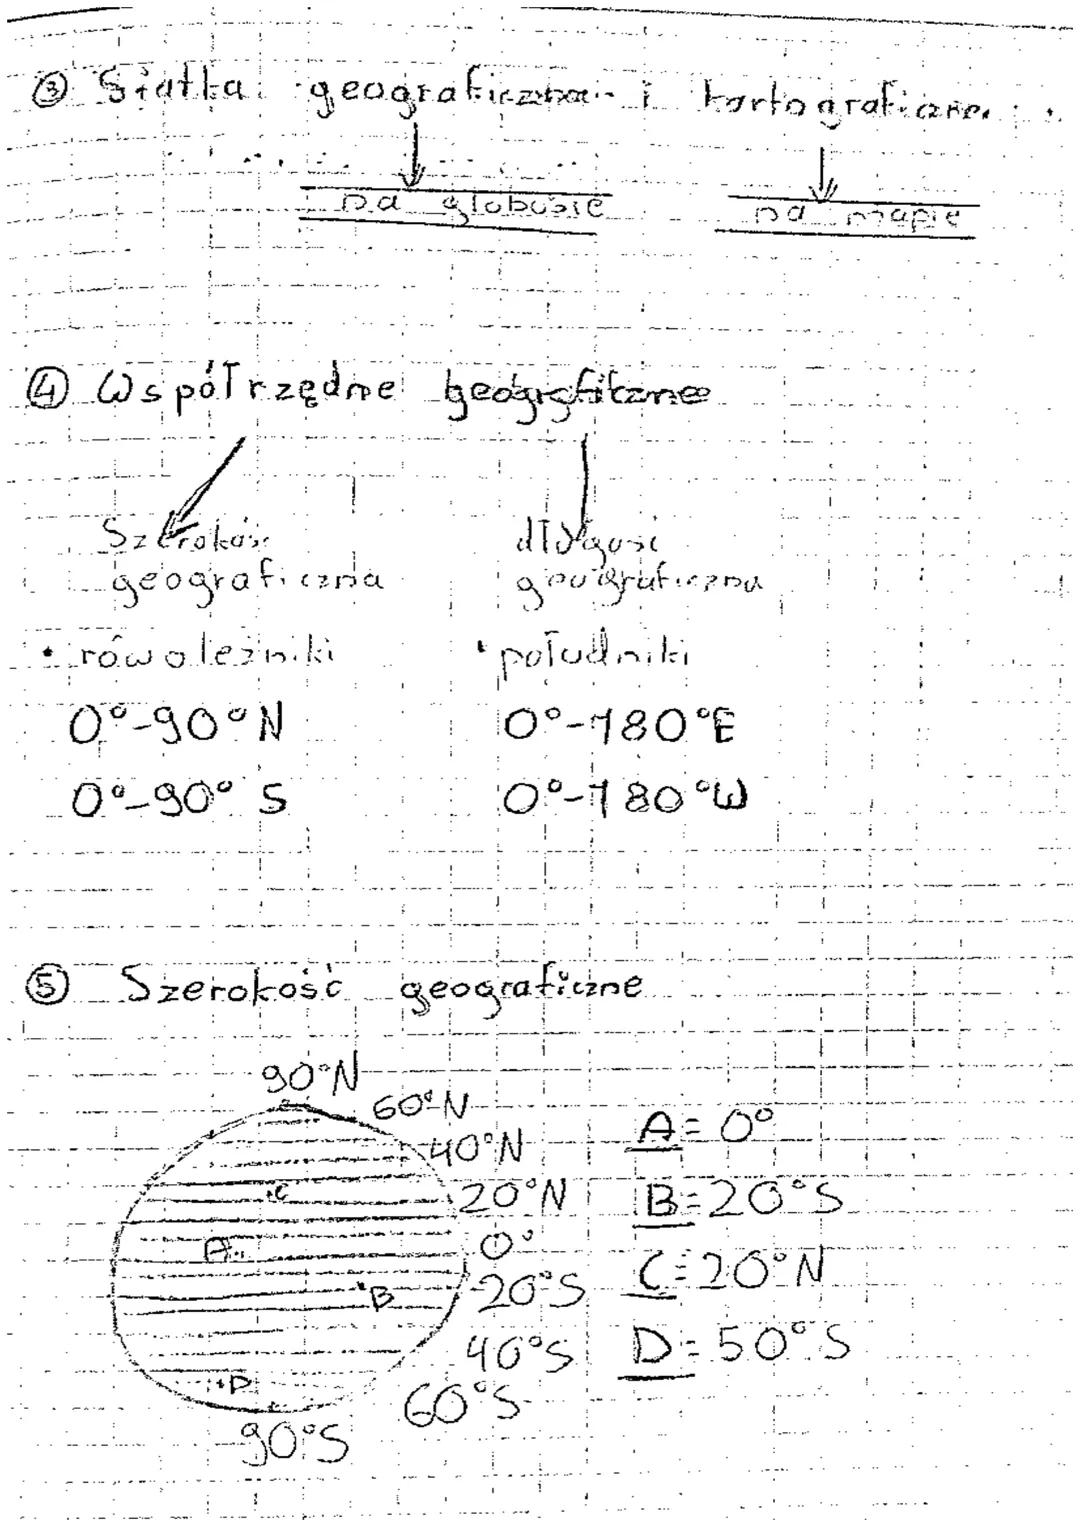 ③ Siatka geograficzna i kartograficzna
na globusie na mapie
④ Współrzędne geograficzne
Szerokość długość
geograficzna geograficzna
• rówoleżniki • południki
0°-90°N 0°-180°E
0°-90° S 0°-180°W
⑤ Szerokość geograficzne
90°N
60°N
40°N A = 0°
C 20°N B = 20°S
A 0°
B 20°S C = 20°N
40°S D = 50°S
D 60°S
90°S